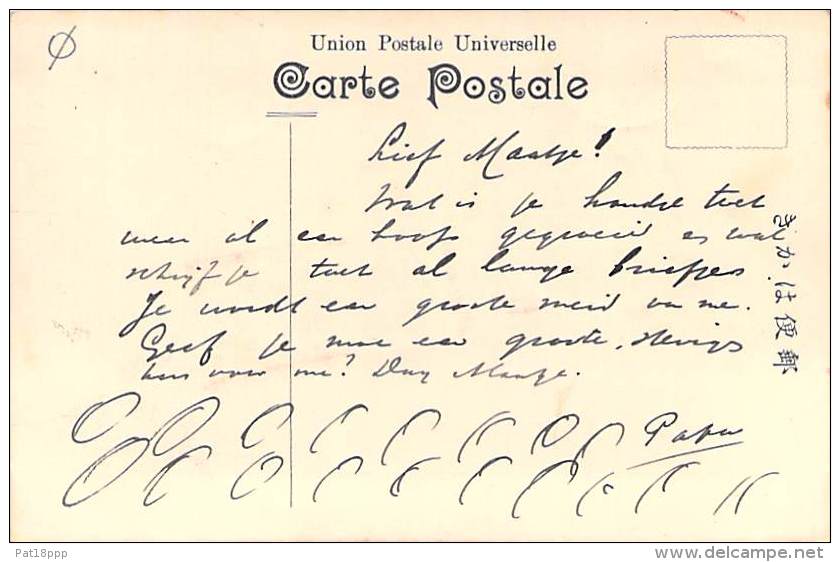 Union Postale Universelle
Carte Postale
Lief Maatje!
Wat is je handje toch
weer al een hoop gegroeid en wat
schrijf je toch al lange briefjes
Je wordt een groote meid van me.
Geef je moe een groote, stevige
kus voor me? Dag Maatje.
Papa
きかは便郵
Pat18ppp
delcampe.net